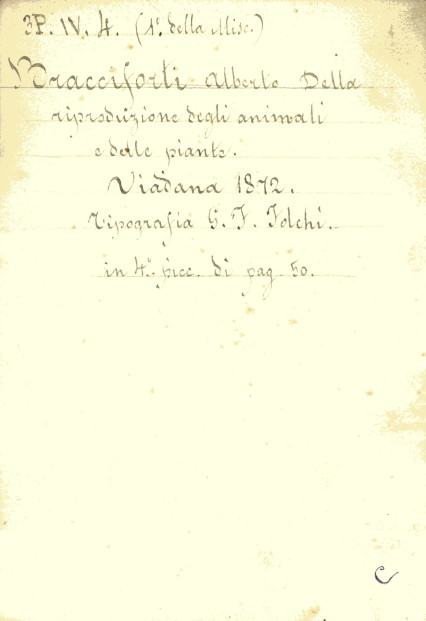 3P. IV. 4. (1º. della Misc.)
Bracciforti Alberto Della
riproduzione degli animali
e delle piante.
Viadana 1872.
Tipografia G. F. Folchi.
in 4º. picc. di pag. 50.
C